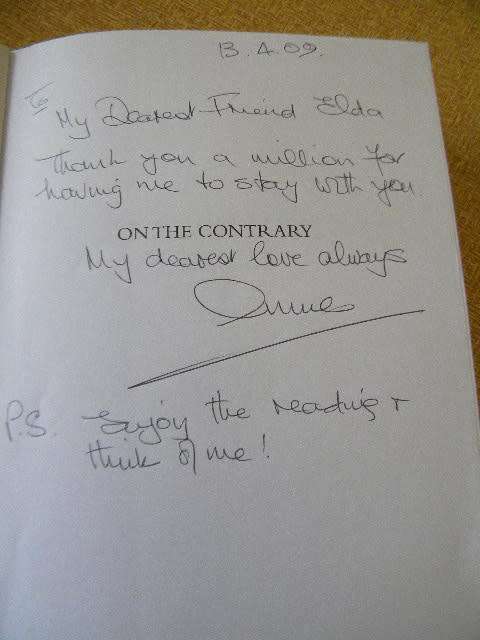 13.4.09.
To
My Dearest Friend Elda
Thank you a million for
having me to stay with you
ON THE CONTRARY
My dearest love always
Anne
P.S. Enjoy the reading +
think of me!